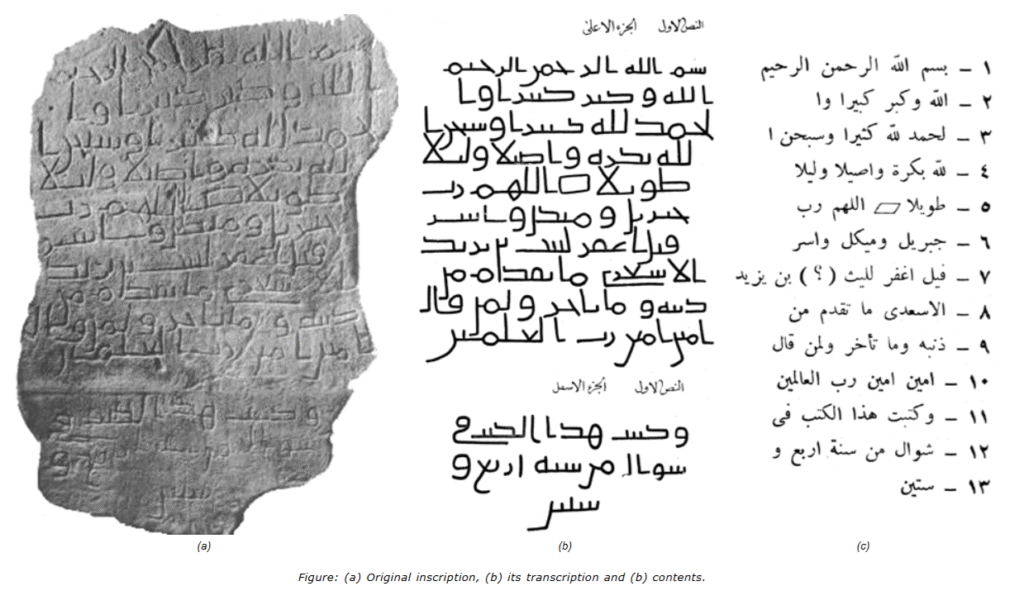 النص الاول الجزء الاعلى
بسم الله الرحمن الرحيم
الله وكبر كبيرا وا
لحمد لله كثيرا وسبحن ا
لله بكرة واصيلا وليلا
طويلا اللهم رب
جبريل وميكل واسر
فيل اغفر لليث بن يزيد
الاسعدي ما تقدم من
ذنبه وما تاخر ولمن قال
امين امين رب العلمين
النص الاول الجزء الاسفل
وكتبت هذا الكتب في
شوال من سنة اربع و
ستين
١ – بسم الله الرحمن الرحيم
٢ – الله وكبر كبيرا وا
٣ – لحمد لله كثيرا وسبحن ا
٤ – لله بكرة واصيلا وليلا
٥ – طويلا ▱ اللهم رب
٦ – جبريل وميكل واسر
٧ – فيل اغفر لليث (؟) بن يزيد
٨ – الاسعدى ما تقدم من
٩ – ذنبه وما تأخر ولمن قال
١٠ – امين امين رب العالمين
١١ – وكتبت هذا الكتب فى
١٢ – شوال من سنة اربع و
١٣ – ستين
(a) (b) (c)
Figure: (a) Original inscription, (b) its transcription and (b) contents.